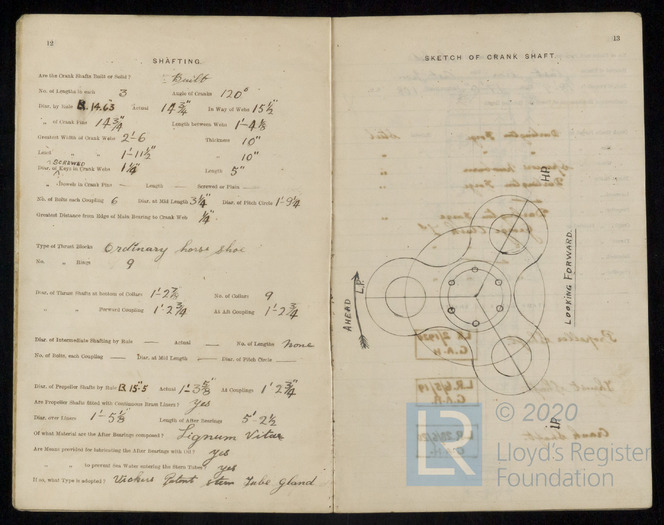 12
SHAFTING.
Are the Crank Shafts Built or Solid? Built
No. of Lengths in each 3 Angle of Cranks 120°
Diar. by Rule B. 14.63 Actual 14 3/4" In Way of Webs 15 1/2"
„ of Crank Pins 14 3/4" Length between Webs 1'-4 1/8
Greatest Width of Crank Webs 2'-6 Thickness 10"
Least „ „ 1'-11 1/2" „ 10"
SCREWED
Diar. of Keys in Crank Webs 1 1/4" Length 5"
„ Dowels in Crank Pins — Length — Screwed or Plain —
No. of Bolts each Coupling 6 Diar. at Mid Length 3 1/4" Diar. of Pitch Circle 1'-9 1/4
Greatest Distance from Edge of Main Bearing to Crank Web 1/4"
Type of Thrust Blocks Ordinary horse shoe
No. „ Rings 9
Diar. of Thrust Shafts at bottom of Collars 1'-2 7/8 No. of Collars 9
„ „ Forward Coupling 1' 2 3/4 At Aft Coupling 1'-2 3/4
Diar. of Intermediate Shafting by Rule — Actual — No. of Lengths None
No. of Bolts, each Coupling — Diar. at Mid Length — Diar. of Pitch Circle —
Diar. of Propeller Shafts by Rule B. 15.5 Actual 1'-3 5/8" At Couplings 1' 2 3/4"
Are Propeller Shafts fitted with Continuous Brass Liners? yes
Diar. over Liners 1'-5 1/8 Length of After Bearings 5'-2 1/2
Of what Material are the After Bearings composed? Lignum Vitae
Are Means provided for lubricating the After Bearings with Oil? yes
„ „ to prevent Sea Water entering the Stern Tubes? yes
If so, what Type is adopted? Vickers Patent Stem Tube Gland
13
SKETCH OF CRANK SHAFT.
HP
LOOKING FORWARD.
AHEAD
L.P.
I.P.
LR
© 2020
Lloyd's Register
Foundation